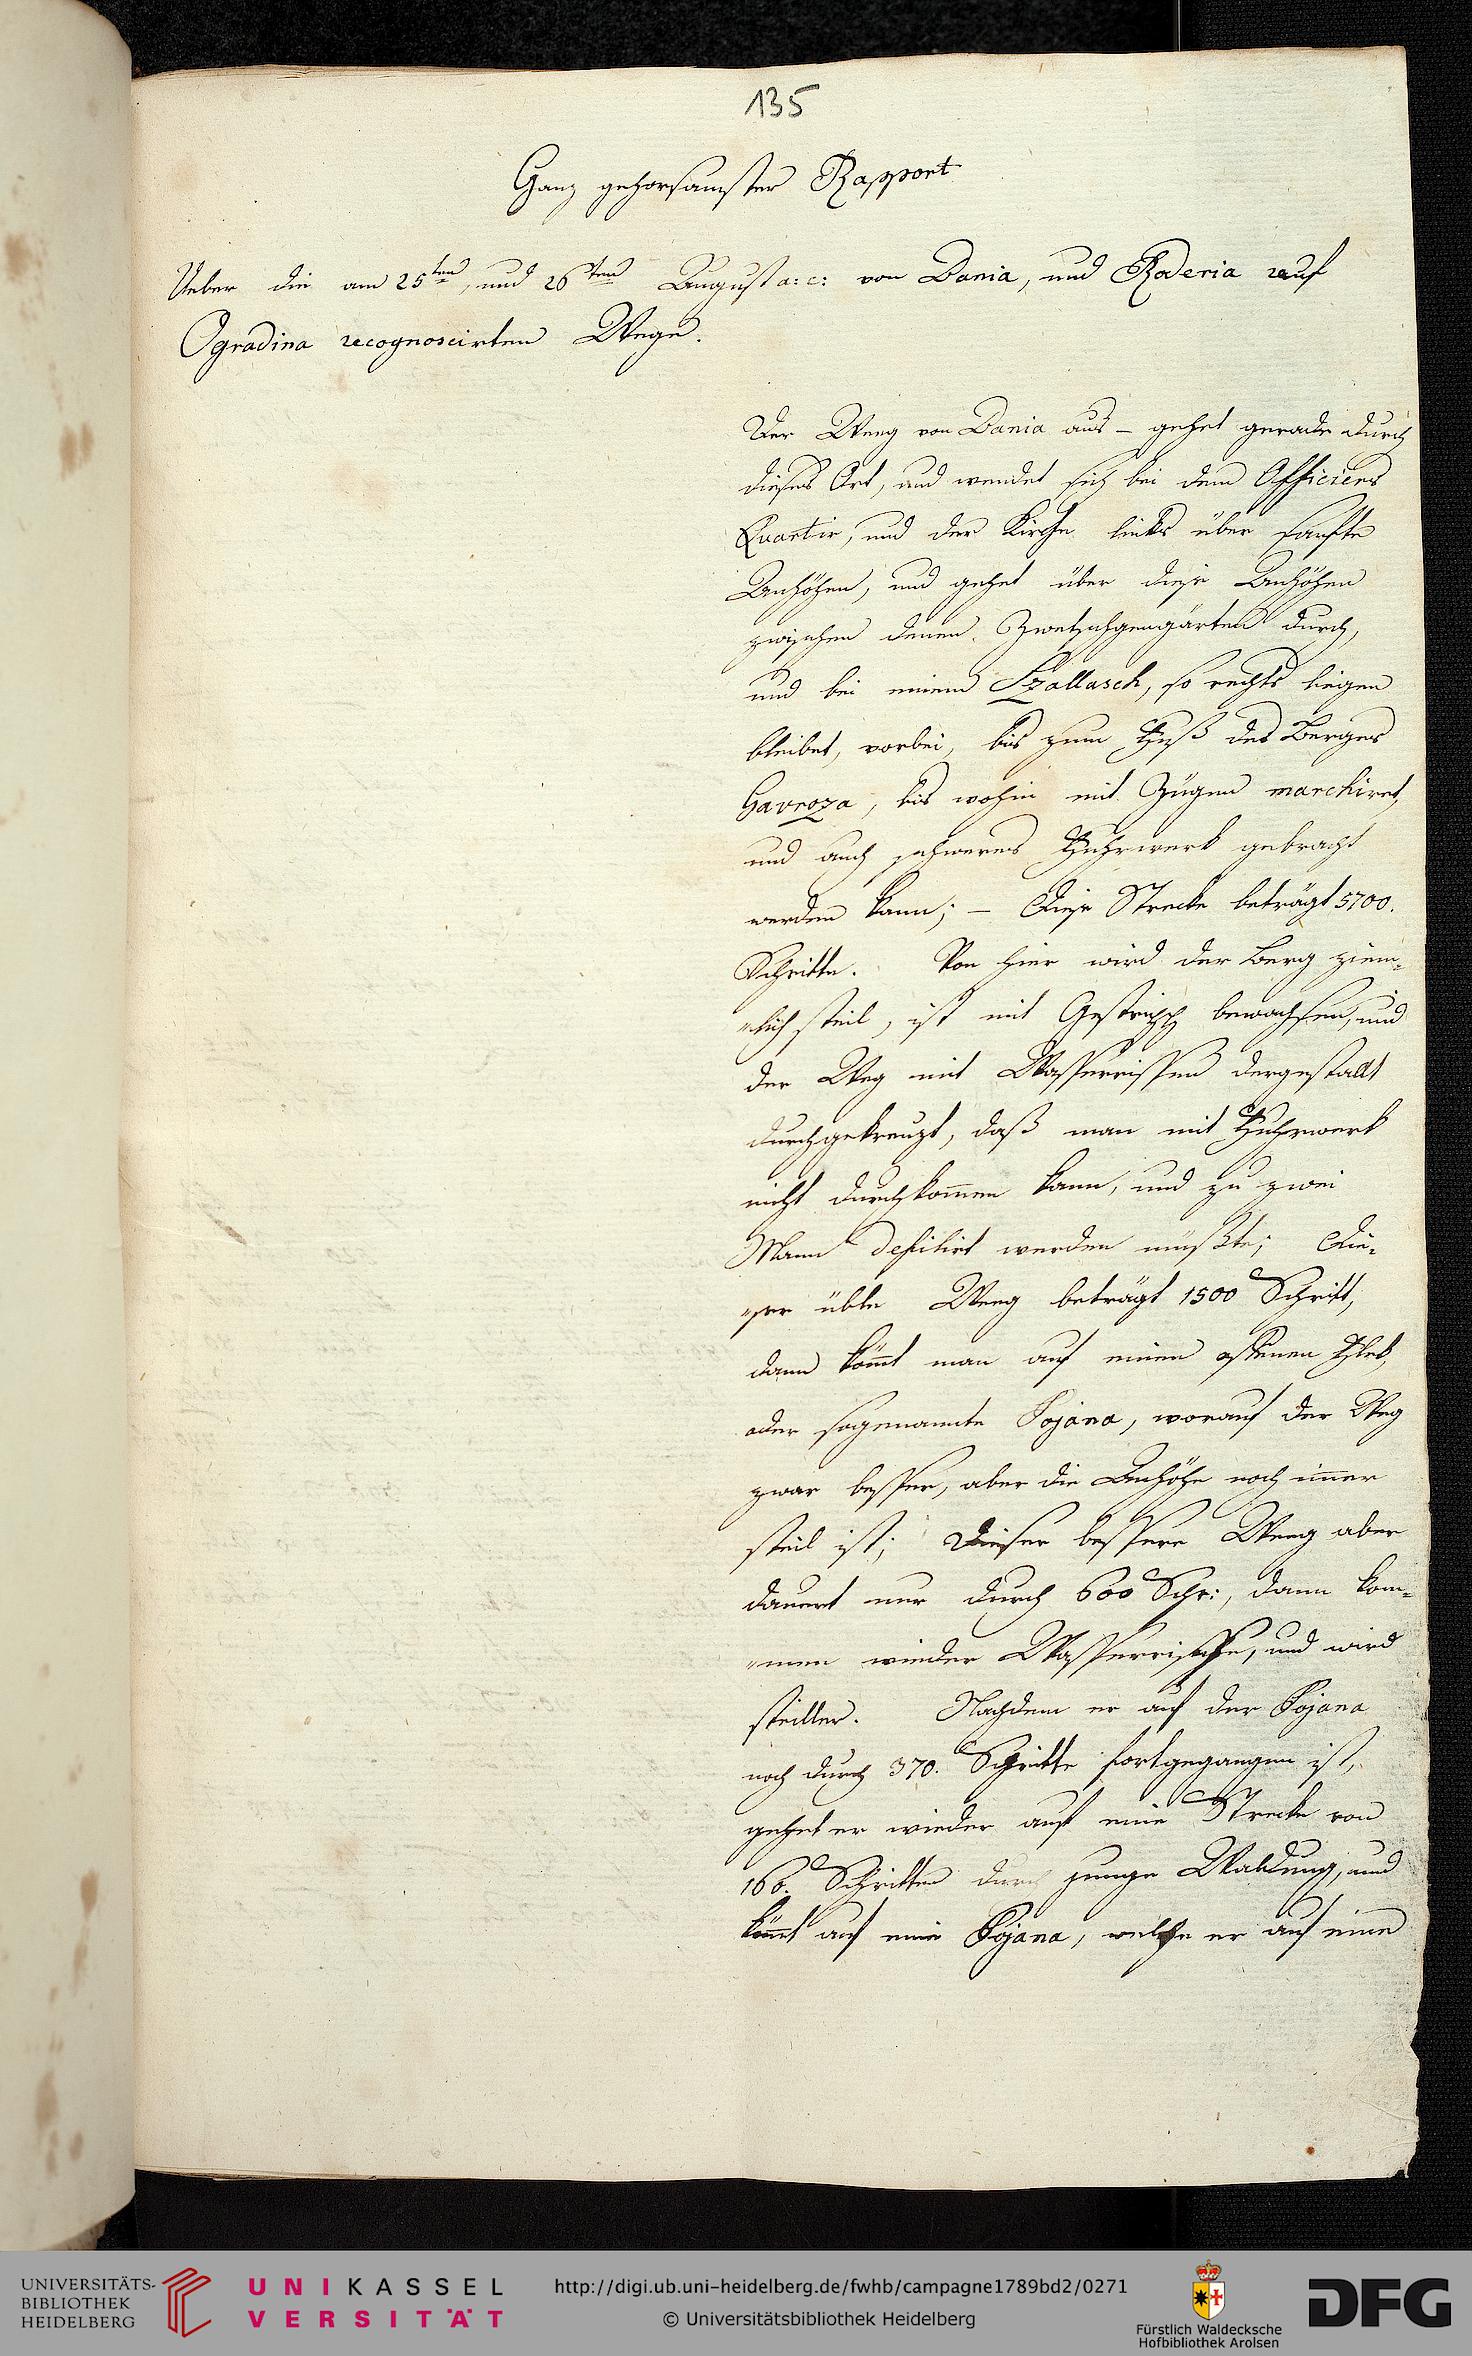 135
Ganz gehorsamster Rapport
Ueber die am 25ten, und 26ten August a: c: von Dania, und Ruderia auf
Ogradina recognoscirten Wege.
Der Weeg von Dania aus – gehet gerade durch
dieses Ort, und wendet sich bei dem Officiers
Quartir, und der Kirche links über sanfte
Anhöhen, und gehet über diese Anhöhen
zwischen denen Zwetschgengärten durch,
und bei einem Szallasch, so rechts liegen
bleibet, vorbei, bis zum Fuß des Berges
Gavroza, bis wohin mit Zügen marchiret,
und auch schweres Fuhrwerk gebracht
werden kann; – Diese Strecke beträgt 5700.
Schritte. Von hier wird der Berg ziem-
"lich steil, ist mit Gestripp bewachsen, und
der Weg mit Wasserrissen dergestallt
durchgekreuzt, daß man mit Fuhrwerk
nicht durchkommen kann, und zu zwei
Mann defilirt werden müßte; Die-
"ser üble Weeg beträgt 1500 Schritt,
dann kömmt man auf einen offenen Flek,
oder sogenannte Pojana, worauf der Weg
zwar besser, aber die Anhöhe noch immer
steil ist; Dieser bessere Weeg aber
dauert nur durch 600 Schr:, dann kom-
"men wieder Wasserrisse, und wird
steiller. Nachdem er auf der Pojana
noch durch 370. Schritte fortgegangen ist,
gehet er wieder auf eine Strecke von
166. Schritten durch junge Waldung, und
kömmt auf eine Pojana, welche er auf eine
UNIVERSITÄTS-
BIBLIOTHEK
HEIDELBERG
UNIKASSEL
VERSITÄT
http://digi.ub.uni-heidelberg.de/fwhb/campagne1789bd2/0271
© Universitätsbibliothek Heidelberg
Fürstlich Waldecksche
Hofbibliothek Arolsen
DFG